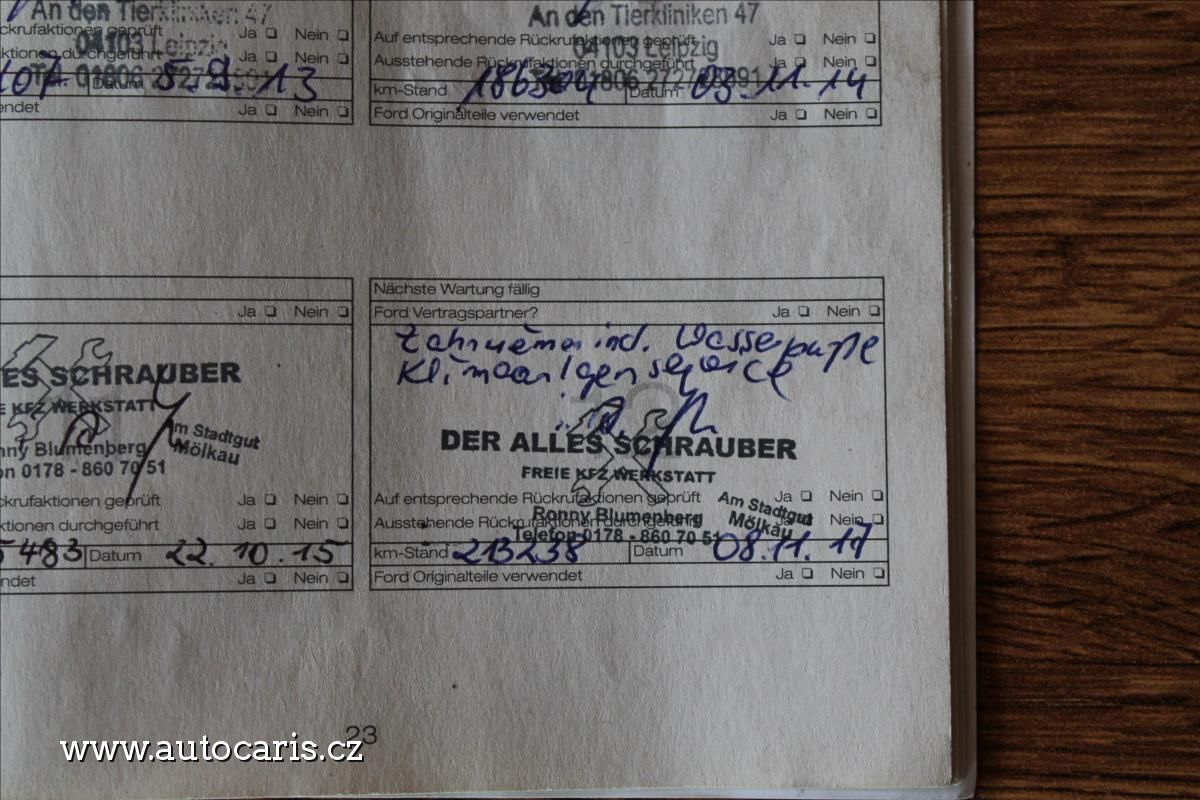 An den Tierkliniken 47
04103 Leipzig
ckrufaktionen geprüft Ja Nein
ktionen durchgeführt Ja Nein
107 Datum 5.9.13
endet Ja Nein
An den Tierkliniken 47
04103 Leipzig
Auf entsprechende Rückrufaktionen geprüft Ja Nein
Ausstehende Rückrufaktionen durchgeführt Ja Nein
km-Stand 186304 Datum 03.11.14
Ford Originalteile verwendet Ja Nein
Ja Nein
ES SCHRAUBER
E KFZ WERKSTATT
nny Blumenberg
on 0178 - 860 70 51
Am Stadtgut
Mölkau
ckrufaktionen geprüft Ja Nein
ktionen durchgeführt Ja Nein
5483 Datum 22.10.15
ndet Ja Nein
Nächste Wartung fällig
Ford Vertragspartner? Ja Nein
incl. Wasserpumpe
DER ALLES SCHRAUBER
FREIE KFZ WERKSTATT
Ronny Blumenberg
Telefon 0178 - 860 70 51
Am Stadtgut
Mölkau
Auf entsprechende Rückrufaktionen geprüft Ja Nein
Ausstehende Rückrufaktionen durchgeführt Ja Nein
km-Stand 213238 Datum 08.11.17
Ford Originalteile verwendet Ja Nein
23
www.autocaris.cz